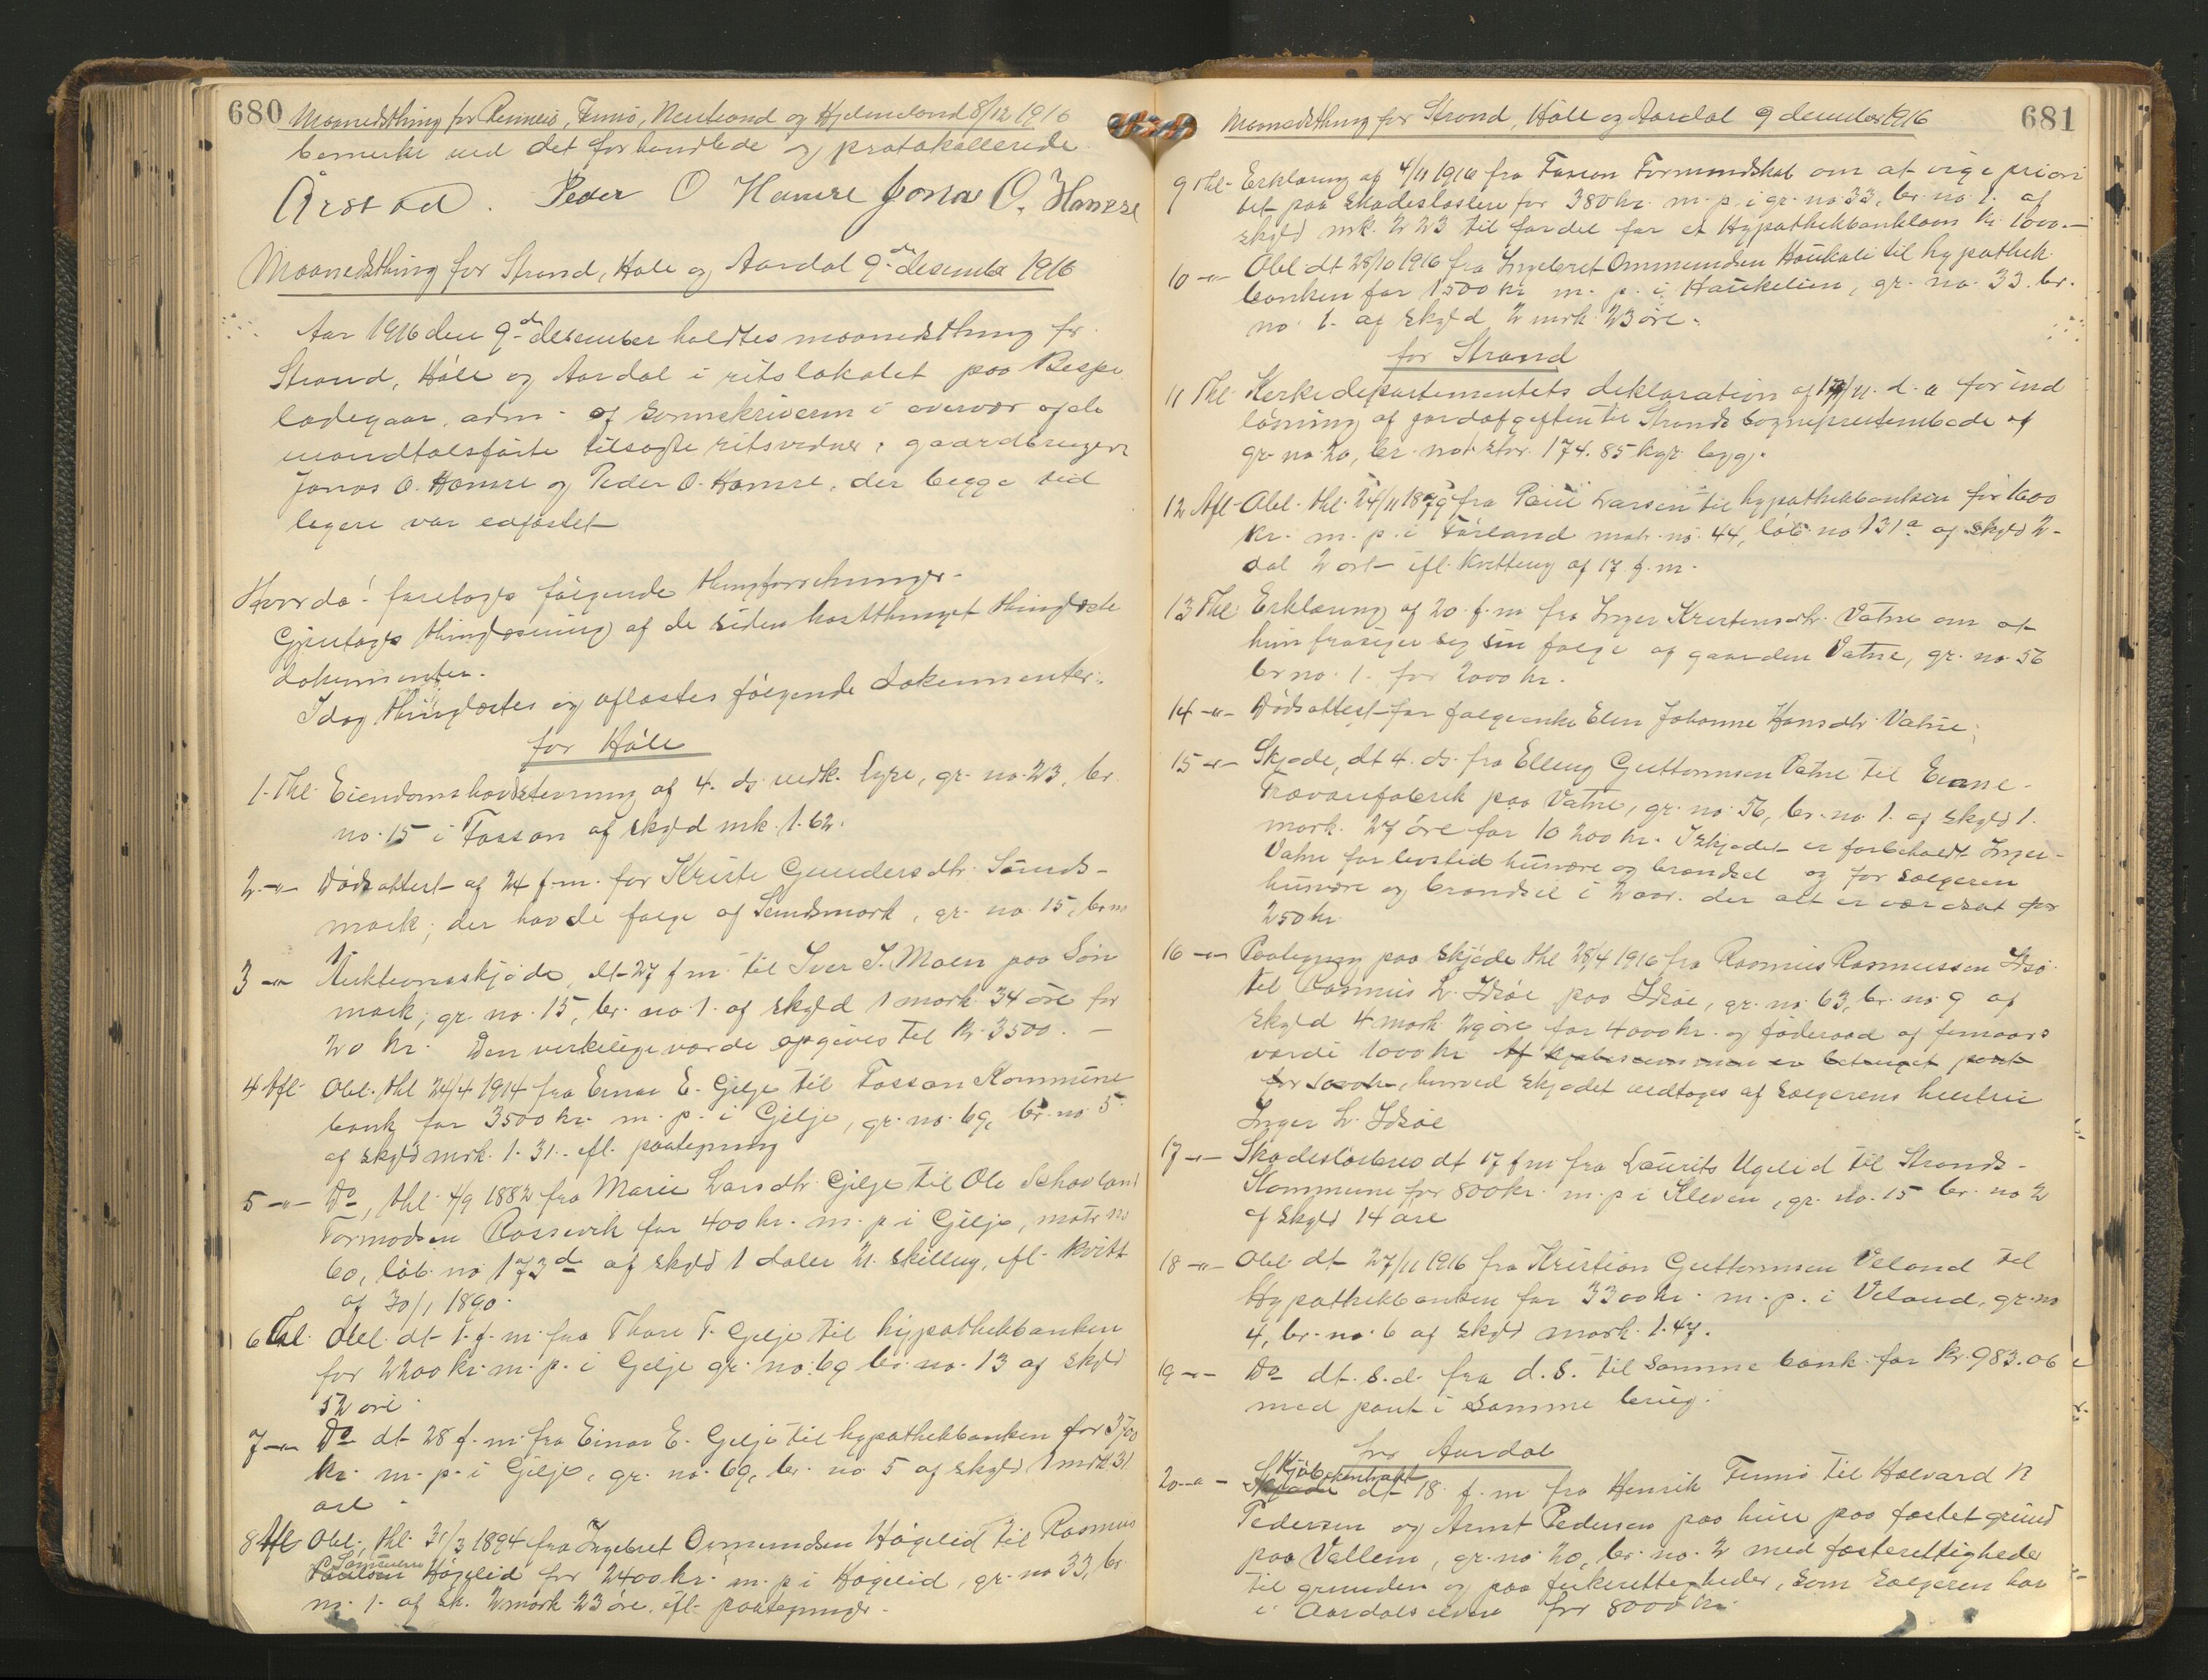 680 Maanedsthing for Rennesö, Finnö, Nerstrand og Hjelmeland 8/12 1916
bemerke ved det forhandlede og protokollerede
Årstad. Peder O Hamre Jonas O. Hamre
Maanedsthing for Strand, Höle og Aardal 9de desember 1916
Aar 1916 den 9de desember holdtes maanedsthing for
Strand, Höle og Aardal i retslokalet paa Bespe
ladegaar, adm. af sorenskriveren i overvær af de
mandtalsførte tilsagte retsvidner, gaardbruger
Jonas O. Hamre og Peder O. Hamre, der begge tid
ligere var edfæstet
Hvorda! foretoges følgende thingforretninger.
Gjentoges thinglæsning af de siden høstthinget thinglæste
dokumenter.
Idag thinglæstes og aflæstes følgende dokumenter:
for Höle
1. Thl. Eiendomshævdstevning af 4. ds. vedk. Eyre, gr. no. 23, br.
no. 15 i Fossan af skyld mk. 1.62.
2 -"- Dødsattest af 24 f.m. for Kriste Gundersdtr. Sønds-
mark, der havde folge af Sundsmark, gr. no. 15, br. no
1.
3 -"- Auktionsskjøde, dt. 27 f.m. til Iver I. Moen paa Søn
mark, gr. no. 15, br. no. 1. af skyld 1 mark 34 øre for
20 kr. Den verkelige værde opgives til kr. 3500. -
4 Afl. Obl. thl 24/4 1914 fra Einar E. Gilje til Fossan Kommune
bank for 3500 kr. m. p. i Gilje, gr. no. 69, br. no. 5
af skyld mrk. 1.31. ifl. paategning
5 -"- Do, thl. 4/9 1882 fra Marie Larsdtr. Gilje til Ole Schavland
Tormodsen Rossevik for 400 kr. m. p i Gilje, matr. no
60, löb. no 173d af skyld 1 daler 21 skilling, ifl. kvitt
af 30/1 1890.
6 Thl. Obl. dt. 1. f. m. fra Thore T. Gilje til hypothekbanken
for 2200 kr. m. p. i Gilje gr. no. 69 br. no. 13 af skyld
52 øre.
7 -"- Do dt 28 f. m. fra Einar E. Gilje til hypothekbanken for 3700
kr. m. p. i Gilje, gr. no. 69, br. no 5 af skyld 1 mrk 31
øre.
8 Afl Obl., thl. 31/3 1894 fra Ingebret Ommundsen Högelid til Rasmus
Paulsen Högelid for 2400 kr. m. p i Högelid, gr. no 33, br.
no. 1. af sk. 2 mark 23 øre, ifl. paategninger.
Maanedsthing for Strand, Höle og Aardal 9 december 1916 681
9 Thl. Erklæring af 4/11 1916 fra Fossan Formundskab om at vige priori
tet paa skadesløsbrev for 380 kr. m. p. i gr. no. 33, br. no. 1. af
skyld mk. 2.23 til fordel for et Hypothekbanklaan kr. 1000.-
10 -"- Obl. dt 28/10 1916 fra Ingebret Ommundsen Haukali til hypothek
banken for 1500 kr m. p. i Haukelien, gr. no. 33. br.
no. 1. af skyld 2 mrk 23 øre.
for Strand
11 Thl. Kerkedepartementets deklaration af 17/11. d. a for ind
løsning af jordafgiften til Strands sogneprestembede af
gr. no 20, br. no 1 stor 174.85 kgr. byg.
12 Afl. Obl. thl. 24/11 1879 fra Paul Larsen til hypothekbanken for 1600
kr. m. p. i Førland matr. no. 44, løb. no 131a af skyld 2
dal 2 ort ifl. kvittering af 17. f. m.
13 Thl Erklæring af 20. f. m fra Inger Kristensdtr. Vatne om at
hun frasiger seg sin folge af gaarden Vatne, gr. no. 56
br no. 1. for 2000 kr.
14 -"- Dødsattest for folgeenke Elen Johanne Hansdtr Vatne.
15 -"- Skjøde, dt 4. ds. fra Elling Guttormsen Vatne til Evans
Trævarefabrik paa Vatne, gr. no. 56, br. no 1. af skyld 1.
mark. 27 øre for 10 200 kr. I skjødet er forbeholdt Inger
Vatne for livstid husvære og brændsel og for sælgeren
husvære og brændsel i 2 aar. der alt er værdsat for
250 kr.
16 -"- Paategning paa skjøde thl 28/4 1916 fra Rasmus Rasmussen Idsö
til Rasmus L. Idsöe paa Idsöe, gr. no. 63, br. no. 9 af
skyld 4 mark 29 øre for 4000 kr. og föderaad af femaars
værdi 1000 kr
hvorved skjødet vedtages af sælgerens hustrue
Inger L. Idsöe
17 -"- Skadesløsbrev dt 17 f m fra Laurits Ugelid til Strands-
Kommune for 800 kr. m. p i Kleven, gr. no. 15 br. no 2
af skyld 14 øre
18 -"- Obl. dt 27/11 1916 fra Kristian Guttormsen Veland til
Hypothekbanken for 3300 kr. m. p. i Veland, gr. no
4, br. no. 6 af skyld mark. 1.47.
19 -"- Do dt. s. d. fra d. s. til samme bank for kr. 983.06
med pant i samme brug.
for Aardal
20 -"- Kjøbekontrakt dt 18. f. m fra Henrik Finnö til Halvard N
Pedersen og Arnt Pedersen paa huse paa fæstet grund
paa Vallem, gr. no. 20, br. no. 2 med fæsterettigheder
til grunden og paa fiskerettigheder, som sælgeren har
i Aardalselven for 8000 kr.